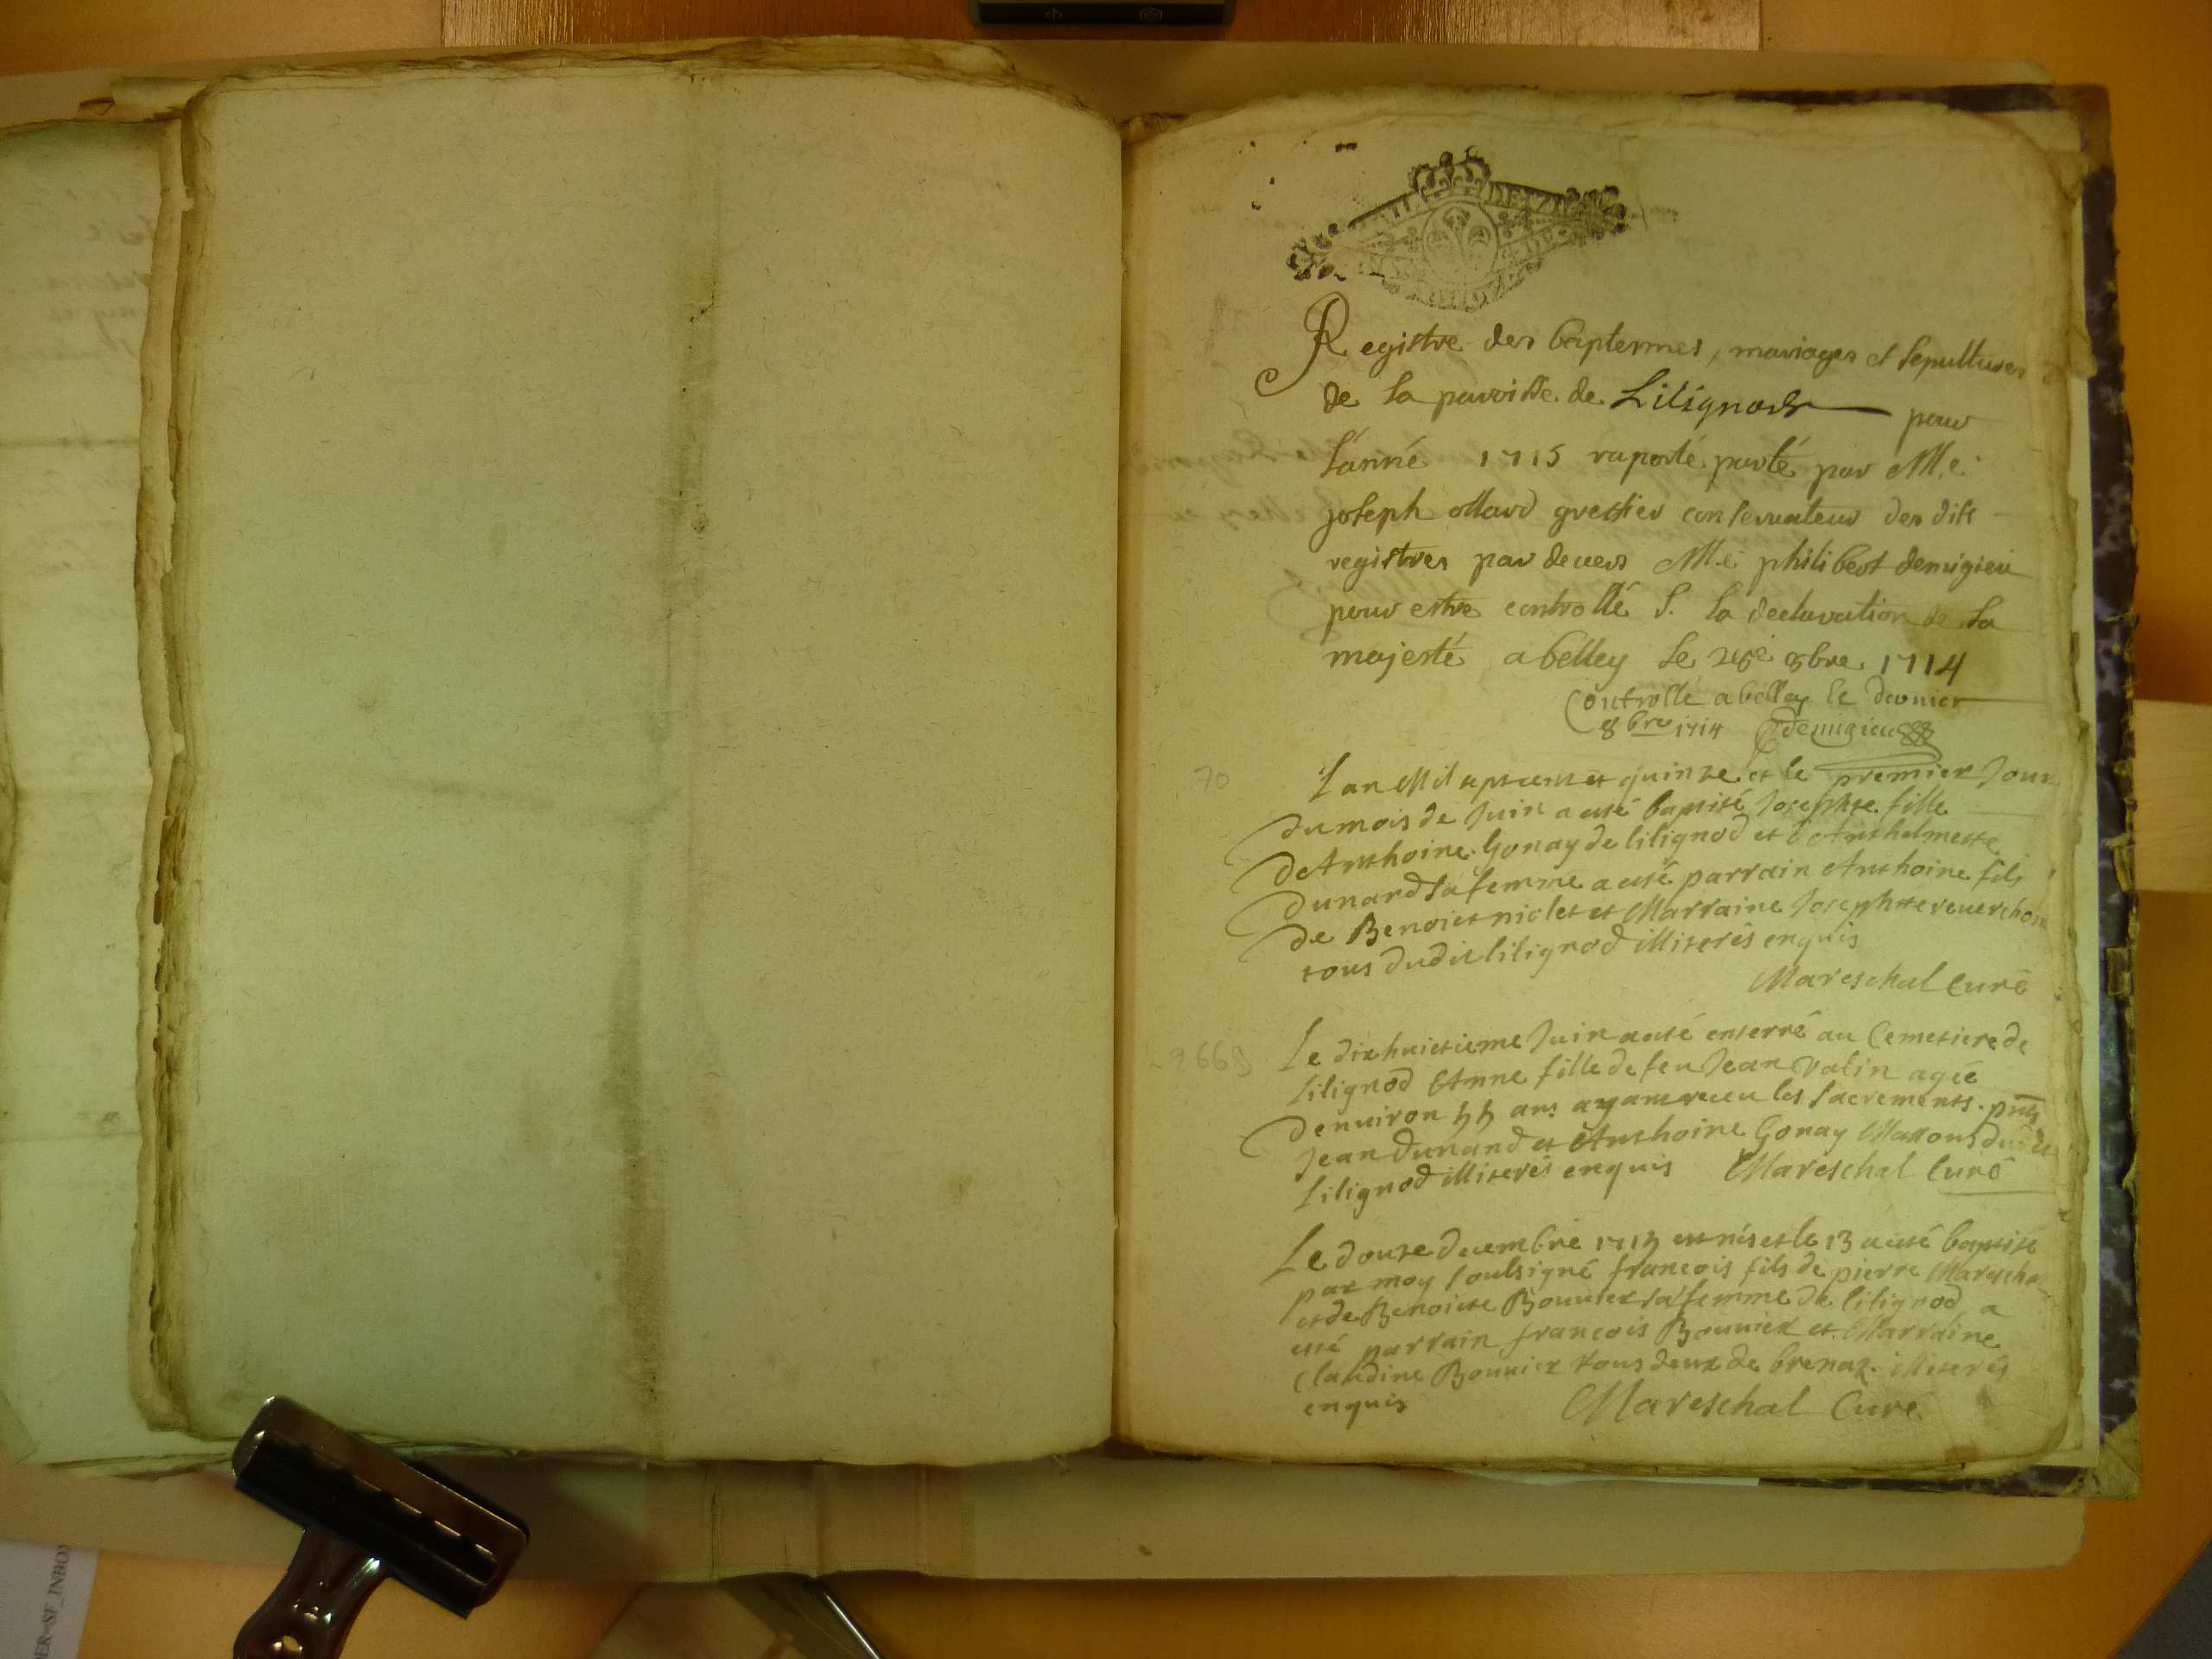 Registre des baptesmes, mariages et sepultures
de la paroisse de Lilignod pour
l'anné 1715 raporté parté par Me
joseph ollard greffier conservateur des dits
registres par devers Me philibert demigieu
pour estre controllé S. la declaration de sa
majesté a belley le 8bre 1714
Controllé a belley le dernier
8bre 1714 Demigieu
70
Lan Mil sept cent et quinze et le premier Jour
du mois de Juin a esté baptisé Josephte fille
d'Anthoine Gonay de lilignod et d'Anthelmette
Dunand sa femme a esté parrain Anthoine fils
de Benoict niclet et Marraine Josephte reverchon
tous dudit lilignod illiterés enquis
Mareschal Curé
Le dix huictieme Juin a esté enterré au Cemetiere de
Lilignod Anne fille de feu Jean agée
denviron 55 ans ayant receu les sacrements. pnts
Jean Dunand et Anthoine Gonay Massons dudit
Lilignod illiterés enquis Mareschal Curé
Le douze decembre 1715 est nés et le 13 a esté baptisé
par moy soulsigné francois fils de pierre Mareschal
et de Benoicte Bonnier sa femme de lilignod a
esté parrain francois Bonnier et Marraine
Claudine Bonnier tous deux de brenaz illiterés
enquis Mareschal Curé